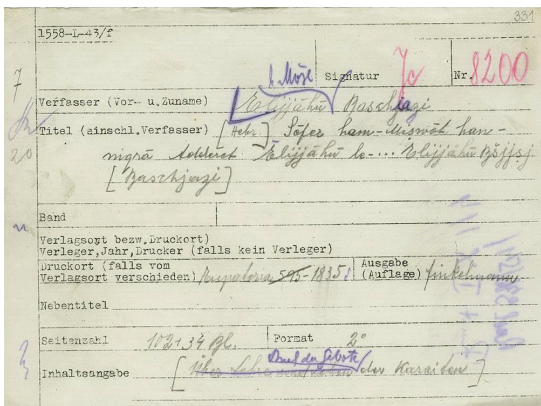 331
1558-L-43/f
b. Môše
Signatur Jc Nr. 8200
Verfasser (Vor- u. Zuname) Elijjāhû Baschjazi
Titel (einschl. Verfasser) [Hebr.] Sēfer ham-Miṣwôt han-
niqrā Adderet Elijjāhû le-... Elijjāhû Bšjṣj
[Baschjazi]
Band
Verlagsort bezw. Druckort)
Verleger, Jahr, Drucker (falls kein Verleger)
Druckort (falls vom Ausgabe
Verlagsort verschieden) 595 1835 (Auflage) Finkelmann
Nebentitel
Seitenzahl 102+34 Bl. Format 2°
Buch der Gebote
Inhaltsangabe [Über der Karaiten]